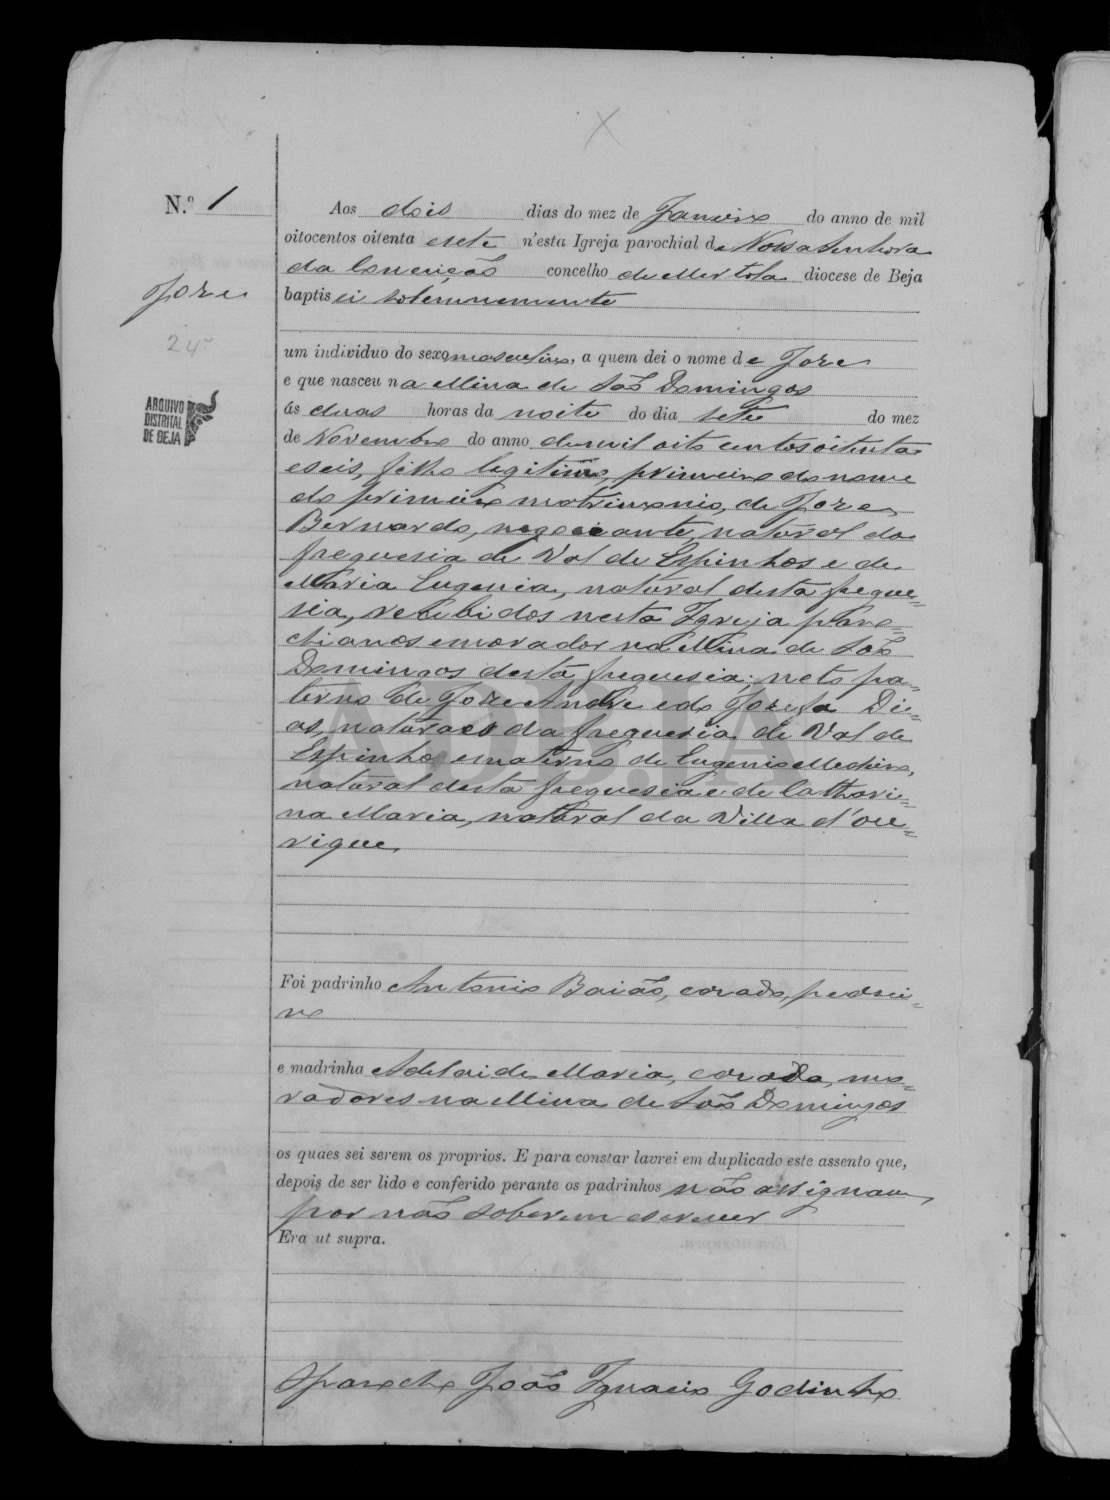 N.º 1
Joze
24
ARQUIVO
DISTRITAL
DE BEJA
Aos dois dias do mez de Janeiro do anno de mil
oitocentos oitenta e sete n'esta Igreja parochial de Nossa Senhora
da Conceição concelho de Mertola diocese de Beja
baptisei solemnemente
um individuo do sexo masculino, a quem dei o nome de Joze
e que nasceu na Mina de São Domingos
ás duas horas da noite do dia sete do mez
de Novembro do anno de mil oito centos oitenta
e seis, filho legitimo, primeiro do nome
do primeiro matrimonio, de Joze
Bernardo, negociante, natural da
freguesia de Val de Espinhos e de
Maria Eugenia, natural desta fregue=
sia, recebidos nesta Igreja paro=
chianos e morador na Mina de São
Domingos desta freguesia; neto pa=
terno de Joze Andre e de Jozefa Di=
as, naturaes da freguesia de Val de
Espinho e materno de Eugenio Medeiro,
natural desta freguesia e de Cathari=
na Maria, natural da Villa d'Ou=
rique,
Foi padrinho Antonio Baião, cazado, pedrei=
ro
e madrinha Adelaide Maria, cazada, mo=
radores na Mina de São Domingos
os quaes sei serem os proprios. E para constar lavrei em duplicado este assento que,
depois de ser lido e conferido perante os padrinhos não assignam,
por não saberem escrever
Era ut supra.
O Parocho João Ignacio Godinho